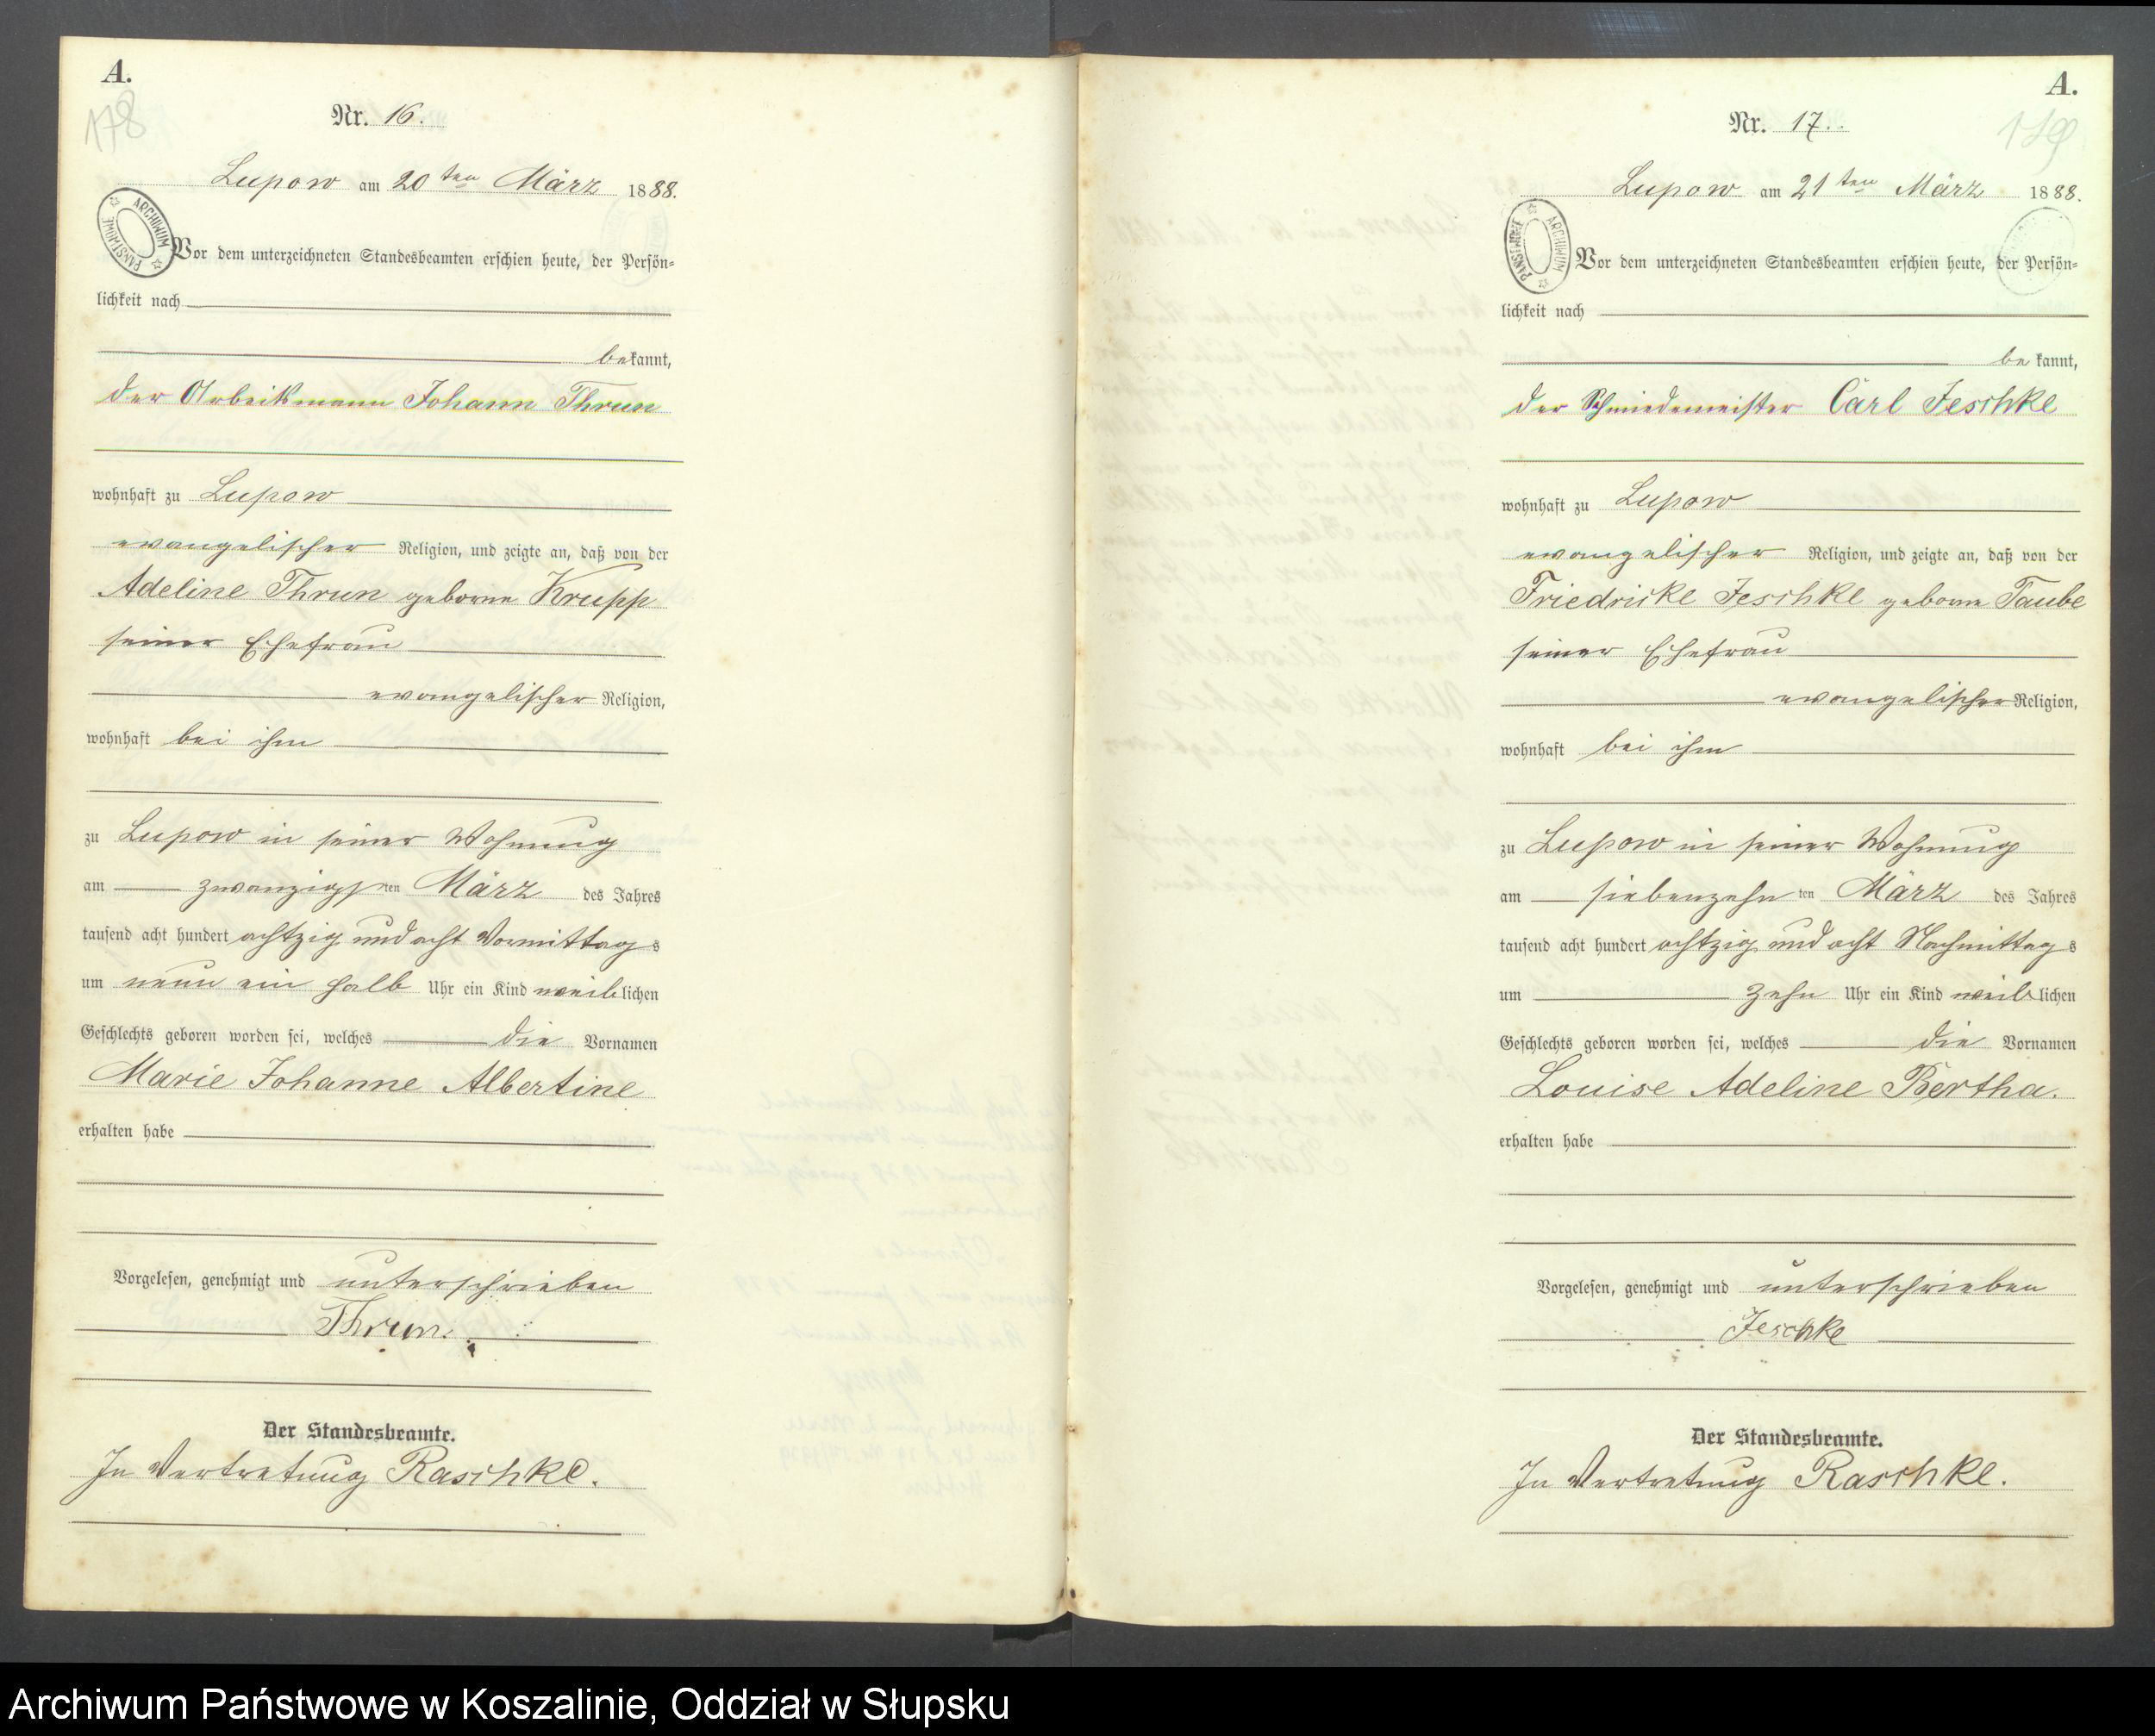 A.
178
Nr. 16.
Lupow am 20 ten März 1888.
ARCHIWUM PAŃSTWOWE
Vor dem unterzeichneten Standesbeamten erschien heute, der Persön-
lichkeit nach
bekannt,
der Arbeitsmann Johann Thrun
wohnhaft zu Lupow
evangelischer Religion, und zeigte an, daß von der
Adeline Thrun geborne Krupp
seiner Ehefrau
evangelischer Religion,
wohnhaft bei ihm
zu Lupow in seiner Wohnung
am zwanzigsten März des Jahres
tausend acht hundert achtzig und acht Vormittags
um neun ein halb Uhr ein Kind weiblichen
Geschlechts geboren worden sei, welches die Vornamen
Marie Johanne Albertine
erhalten habe
Vorgelesen, genehmigt und unterschrieben
Thrun.
Der Standesbeamte.
In Vertretung Raschke.
A.
Nr. 17.
Lupow am 21 ten März 1888.
ARCHIWUM PAŃSTWOWE
Vor dem unterzeichneten Standesbeamten erschien heute, der Persön-
lichkeit nach
bekannt,
der Schmiedemeister Carl Jeschke
wohnhaft zu Lupow
evangelischer Religion, und zeigte an, daß von der
Friedricke Jeschke geborne Taube
seiner Ehefrau
evangelischer Religion,
wohnhaft bei ihm
zu Lupow in seiner Wohnung
am siebenzehnten März des Jahres
tausend acht hundert achtzig und acht Nachmittags
um zehn Uhr ein Kind weiblichen
Geschlechts geboren worden sei, welches die Vornamen
Louise Adeline Bertha.
erhalten habe
Vorgelesen, genehmigt und unterschrieben
Jeschke
Der Standesbeamte.
In Vertretung Raschke.
Archiwum Państwowe w Koszalinie, Oddział w Słupsku